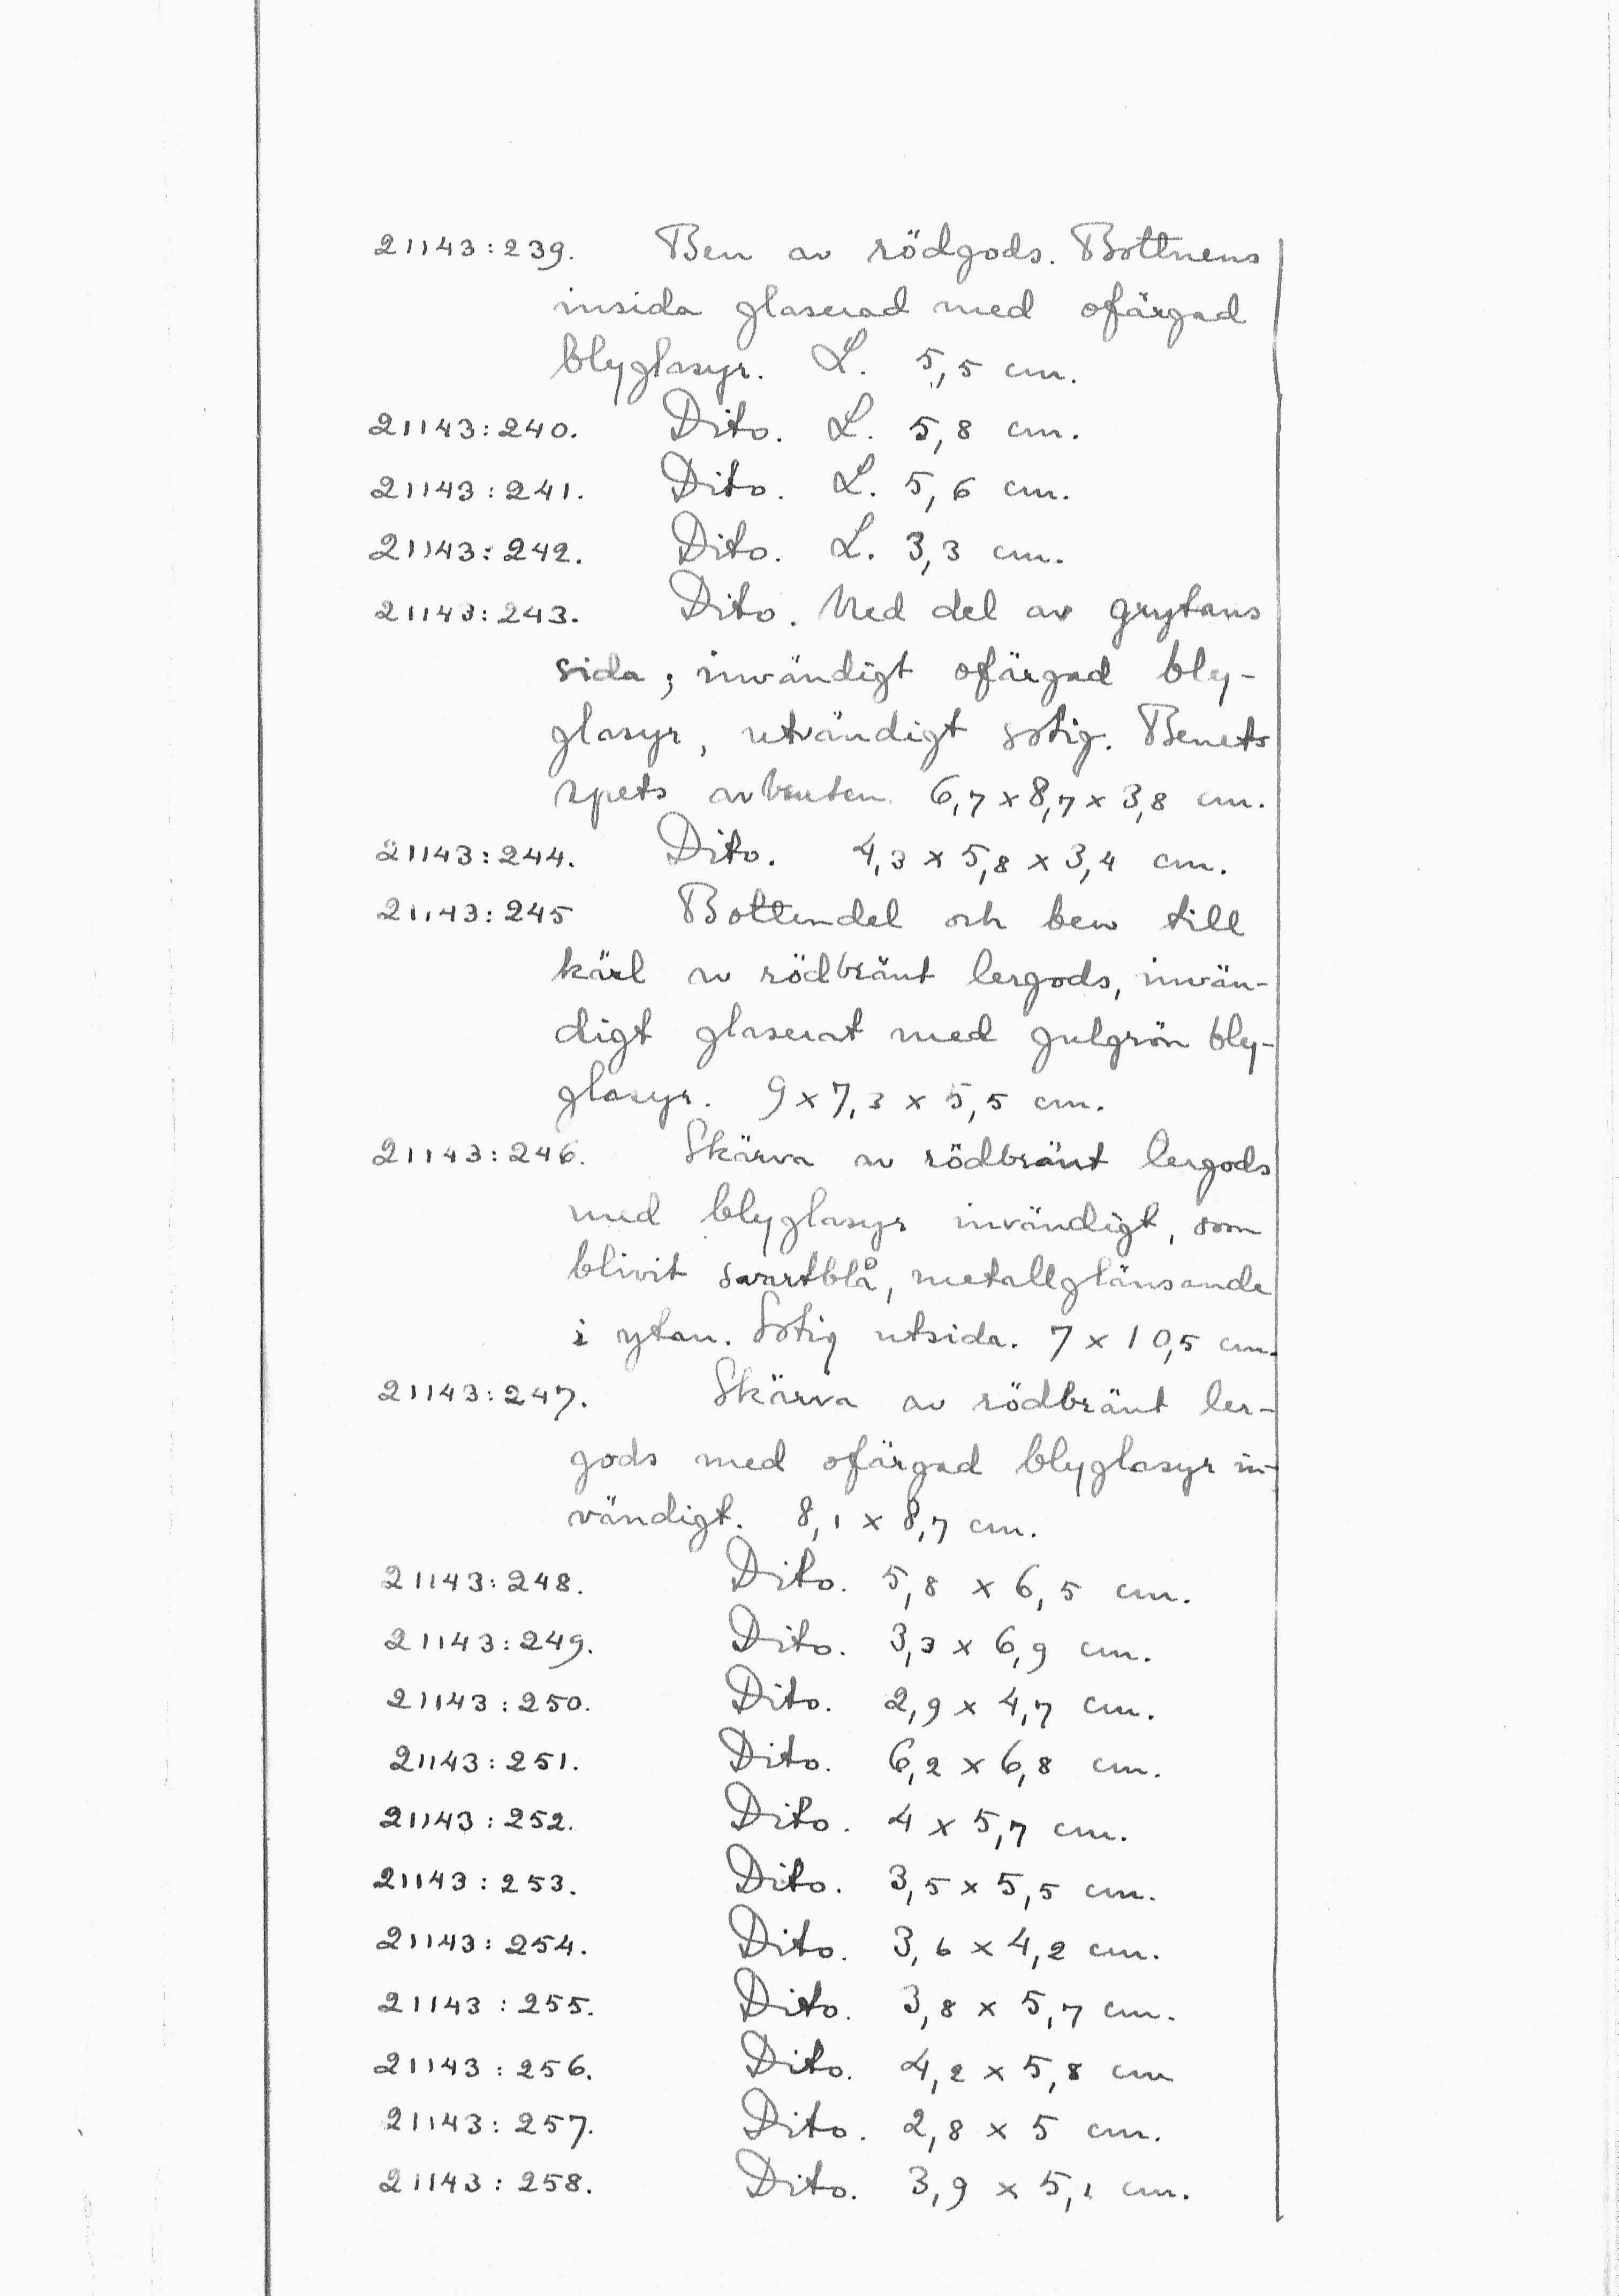 21143:239. Ben av rödgods. Bottnens
insida glaserad med ofärgad
blyglasyr. L. 5,5 cm.
21143:240. Dito. L. 5,8 cm.
21143:241. Dito. L. 5,6 cm.
21143:242. Dito. L. 3,3 cm.
21143:243. Dito. Med del av grytans
sida; invändigt ofärgad bly-
glasyr, utvändigt sotig. Benets
spets avbruten. 6,7 x 8,7 x 3,8 cm.
21143:244. Dito. 4,3 x 5,8 x 3,4 cm.
21143:245 Bottendel och ben till
kärl av rödbränt lergods, invän-
digt glaserat med gulgrön bly-
glasyr. 9 x 7,3 x 5,5 cm.
21143:246. Skärva av rödbränt lergods
med blyglasyr invändigt, som
blivit svartblå, metallglänsande
i ytan. Sotig utsida. 7 x 10,5 cm.
21143:247. Skärva av rödbränt ler-
gods med ofärgad blyglasyr in-
vändigt. 8,1 x 8,7 cm.
21143:248. Dito. 5,8 x 6,5 cm.
21143:249. Dito. 3,3 x 6,9 cm.
21143:250. Dito. 2,9 x 4,7 cm.
21143:251. Dito. 6,2 x 6,8 cm.
21143:252. Dito. 4 x 5,7 cm.
21143:253. Dito. 3,5 x 5,5 cm.
21143:254. Dito. 3,6 x 4,2 cm.
21143:255. Dito. 3,8 x 5,7 cm.
21143:256. Dito. 4,2 x 5,8 cm
21143:257. Dito. 2,8 x 5 cm.
21143:258. Dito. 3,9 x 5,1 cm.